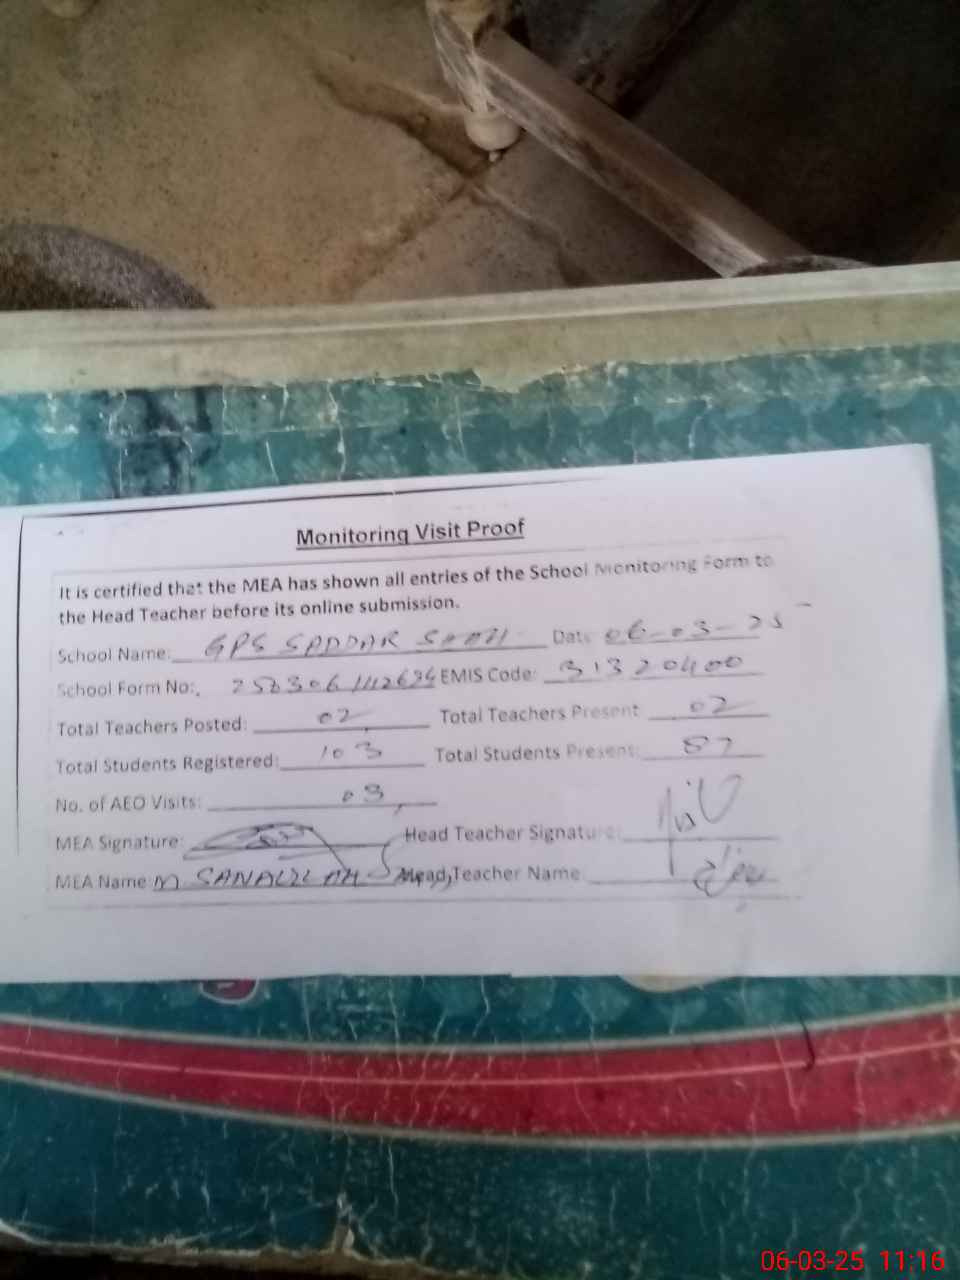 Monitoring Visit Proof
It is certified that the MEA has shown all entries of the School Monitoring Form to
the Head Teacher before its online submission.
School Name: GPS SADDAR SHAH Date 06-03-25
School Form No: EMIS Code: 31320400
Total Teachers Posted: 02 Total Teachers Present 02
Total Students Registered: 103 Total Students Present: 87
No. of AEO Visits: 03
MEA Signature: Head Teacher Signature:
MEA Name: M SANAULLAH Head Teacher Name
06-03-25 11:16